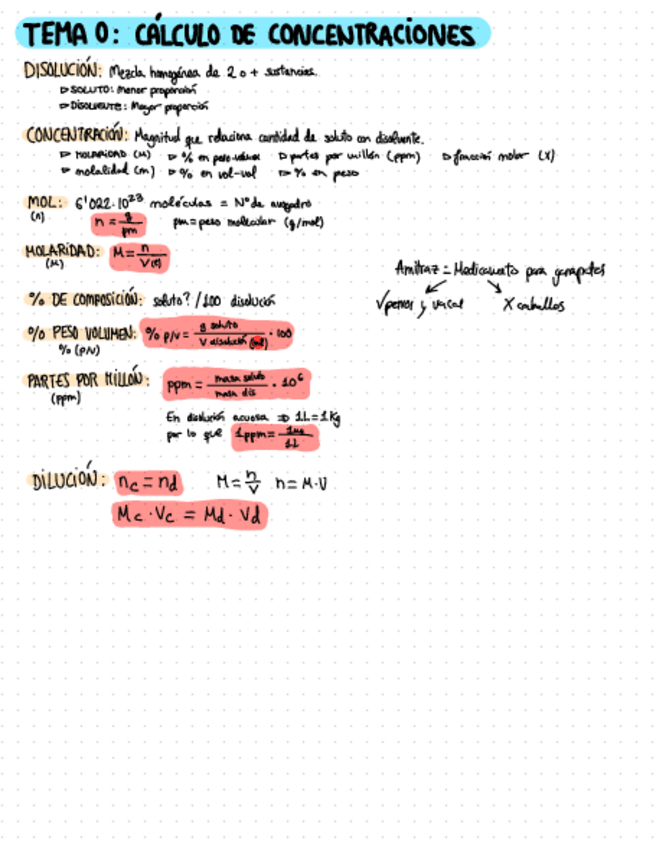 TEMA 0: CÁLCULO DE CONCENTRACIONES
DISOLUCIÓN: Mezcla homogénea de 2 o + sustancias.
▷ SOLUTO: Menor proporción
▷ DISOLVENTE: Mayor proporción
CONCENTRACIÓN: Magnitud que relaciona cantidad de soluto con disolvente.
▷ MOLARIDAD (M) ▷ % en peso-volumen ▷ partes por millón (ppm) ▷ fracción molar (X)
▷ molalidad (m) ▷ % en vol-vol ▷ % en peso
MOL: 6'022·10²³ moléculas = Nº de avogadro
(n) n = g/pm pm = peso molecular (g/mol)
MOLARIDAD: M = n/V(l)
(M)
Amitraz = Medicamento para garrapatas
√ perros y vacas X caballos
% DE COMPOSICIÓN: soluto? / 100 disolución
% PESO VOLUMEN: % p/v = g soluto / V disolución (ml) · 100
% (p/v)
PARTES POR MILLÓN: ppm = masa soluto / masa dis · 10⁶
(ppm)
En disolución acuosa ⇒ 1L = 1Kg
por lo que 1ppm = 1mg / 1L
DILUCIÓN: nc = nd M = n/V n = M·V
Mc · Vc = Md · Vd